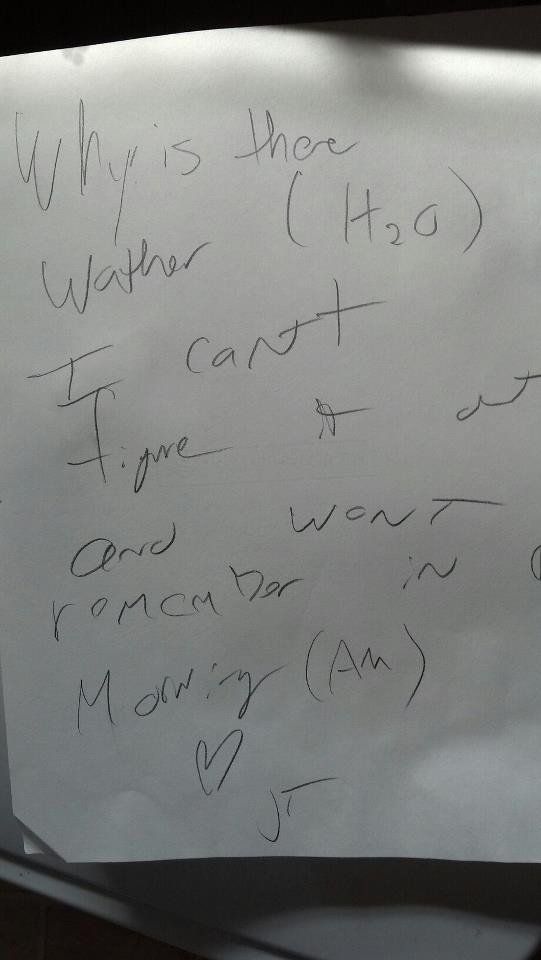 Why is there
Wather (H₂O)
I can't
figure it out
and wont
remember in
Morning (AM)
♡
JT